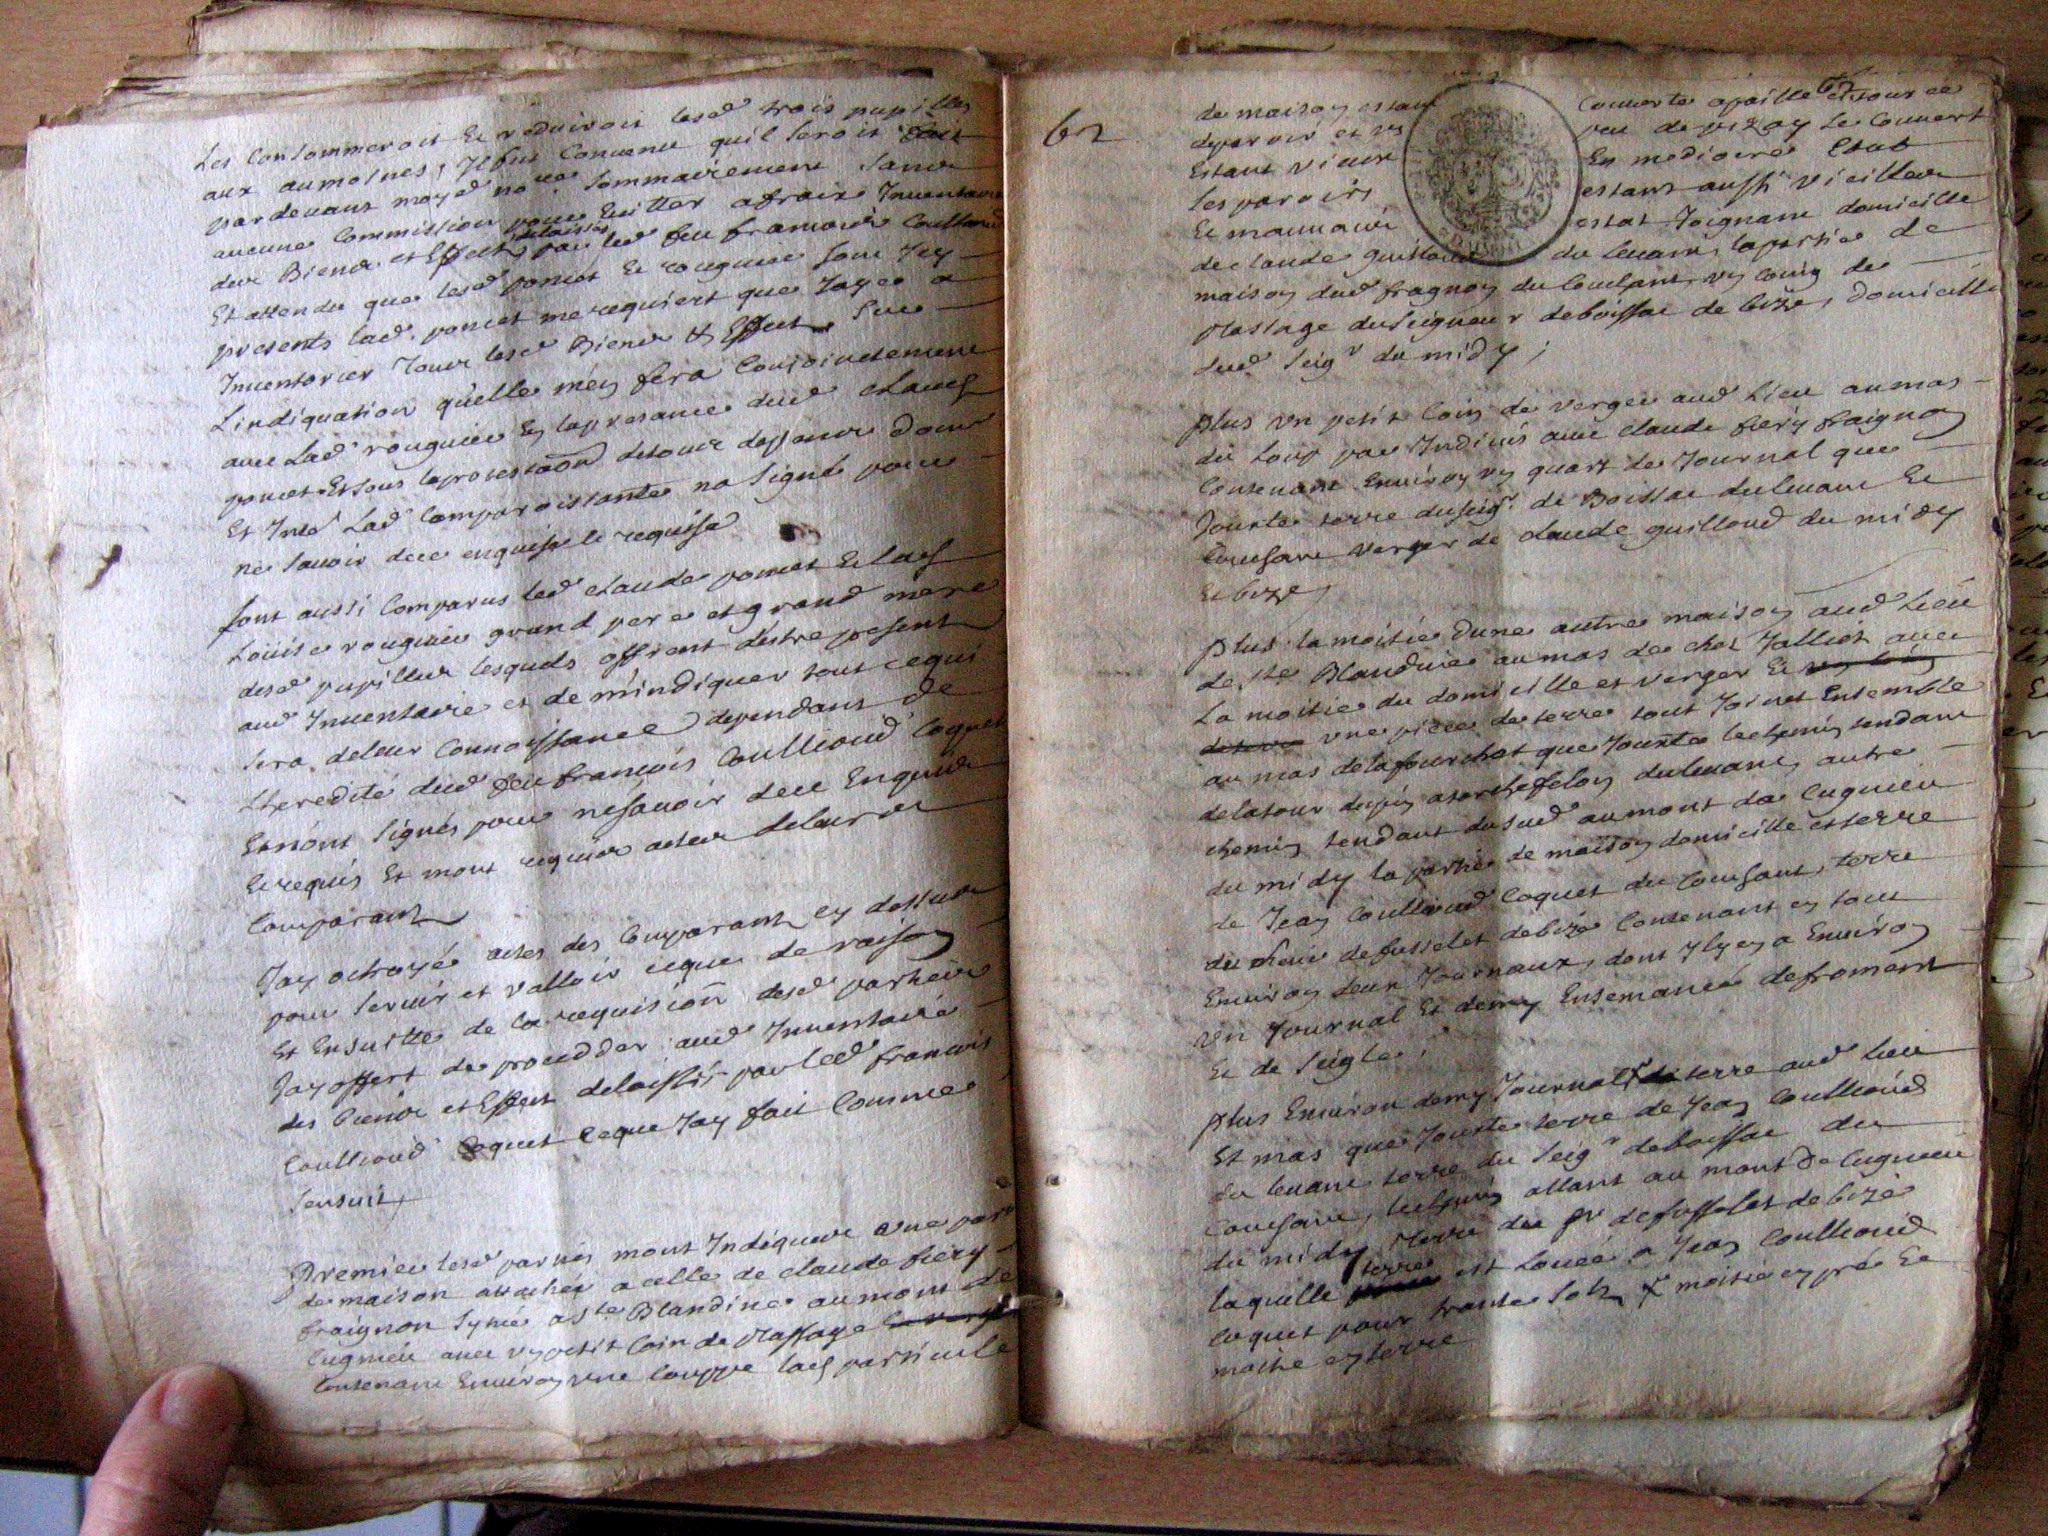 Les Consommeroit Et reduiroit lesd trois pupilles
aux aumosnes, Il fut Convenu quil seroit
pardevant moyd no.re sommairement sans
aucune Commission pour Eviter a fraix Inventaire
des Biens et Effects delaissés par led feu francois Coullioud
Et attendu que lesd poncet Et rouguier sont Icy
presents lad. poncet me requiert que Iaye a
Inventorier tous lesd Biens & Effects sur
Lindiquation quelle men fera Conjointement
avec Lad rouguier En la presance dud Claude
poncet Et sous la protestaon de tous depens dom
Et Int. Lad Comparoissante na signé pour
ne savoir dece enquise le requise
sont aussi Comparus led claude poncet Et lad
Louise rouguier grand pere et grand mere
desd pupilles lesquels offrent destre present
aud Inventaire et de mindiquer tout cequi
sera deleur Connoissance dependant de
Lheredité dud feu francois Coullioud Coquet
Et nont signés pour nesavoir dece Enquis
Et requis Et mont requis actes deleur
Comparant
Jay octroyé actes des Comparants cy dessus
pour servir et valloir ceque de raison
Et Ensuitte de la requision desd parties
Jay offert de procedder aud Inventaire
des biens et Effects delaissés par led francois
Coullioud Coquet ceque Jay fait Comme
sensuit
Premier lesd parties mont Indiquer une part
de maison attachée a celle de claude fiery
fraignon scituée a Ste Blandine au mont de
Cugnieu avec un petit Coin de plassage
Contenant Environ une Couppe lad particule
62
de maison estant Couverte a paille et tour ee
dparoir et un peu de pizay Le Couvert
Estant vieux En mediocre Etat
les parois estant aussi vieilles
Et mauvais estat Joignant domicille
de claude guilloud du levant, la partie de
maison dud fragnon du Couchant, un Coing de
plassage du seigneur deboissac de bize, domicille
dud seigr du midy;
plus un petit Coin de verger aud Lieu au mas
du Loup par Indivis avec claude fiery fraignon
Contenant Environ un quart de Journal que
Jouxte terre duseigr. de Boissac dulevant Et
Couchant verger de claude guilloud du midy
Et bize
plus la moitié dune autre maison aud Lieu
de Ste Blandine au mas de chez Jalliot avec
La moitié du domicille et verger Et
une piece de terre tout Joinct Ensemble
au mas de la fourchat que Jouxte lechemin tendant
delatour dupin a torchefelon dulevant, autre
chemin tendant dusud au mont de Cugnieu
du midy la partie de maison domicille et terre
de Jean Coullioud Coquet du Couchant, terre
du sieur defusselet de bize Contenant en tout
Environ deux Journaux, dont Il y en a Environ
un Journal Et demy Ensemancé de froment
Et de seigle.
plus Environ demy Journal de terre aud Lieu
Et mas que Jouxte terre de Jean Coullioud
du levant terre du seigr deboissac du
Couchant, lechemin allant au mont de Cugnieu
du midy terre du sr defusselet de bize
laquelle terre est louée a Jean Coullioud
Coquet pour trante sols moitié en pré Et
moitié en terre